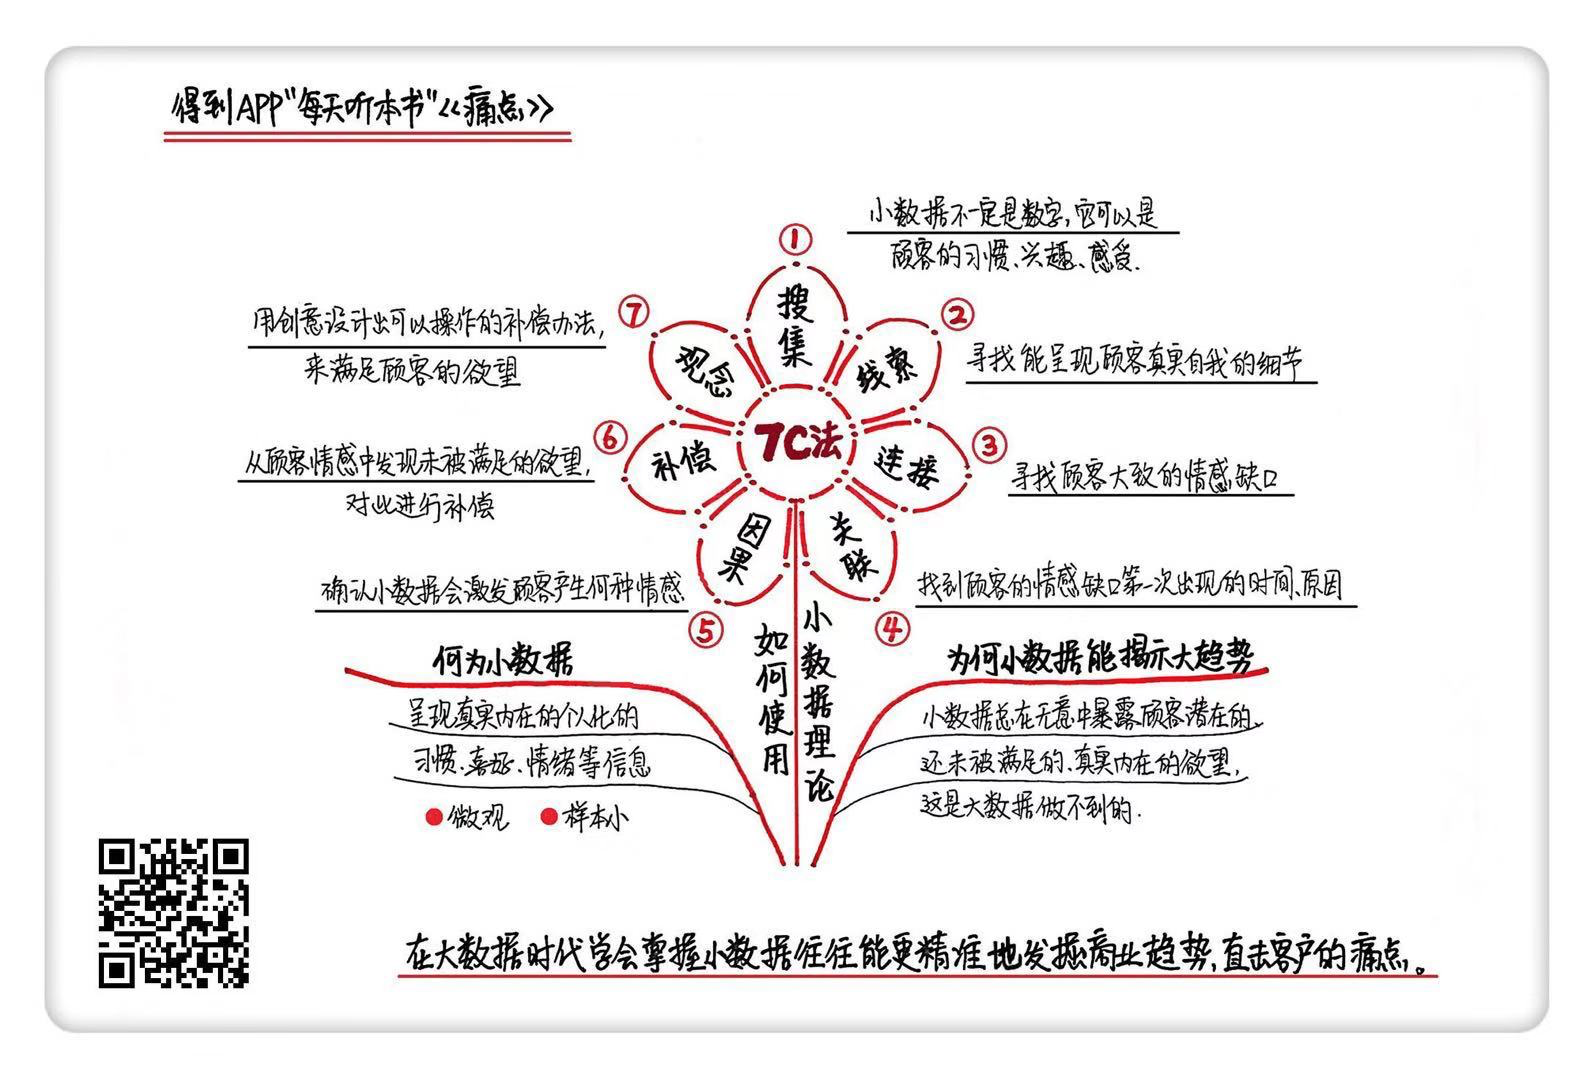 得到APP"每天听本书"《痛点》
①
搜集
小数据不一定是数字,它可以是
顾客的习惯、兴趣、感受.
②
线索
寻找能呈现顾客真实自我的细节
③
连接
寻找顾客大致的情感缺口
④
关联
找到顾客的情感缺口第一次出现的时间、原因
⑤
因果
确认小数据会激发顾客产生何种情感.
⑥
补偿
从顾客情感中发现未被满足的欲望,
对此进行补偿
⑦
观念
用创意设计出可以操作的补偿办法,
来满足顾客的欲望
7C法
如何使用
小数据理论
何为小数据
呈现真实内在的个人化的
习惯、喜好、情绪等信息
微观 样本小
为何小数据能揭示大趋势
小数据总在无意中暴露顾客潜在的、
还未被满足的、真实内在的欲望,
这是大数据做不到的.
在大数据时代学会掌握小数据往往能更精准地发掘商业趋势,直击客户的痛点。